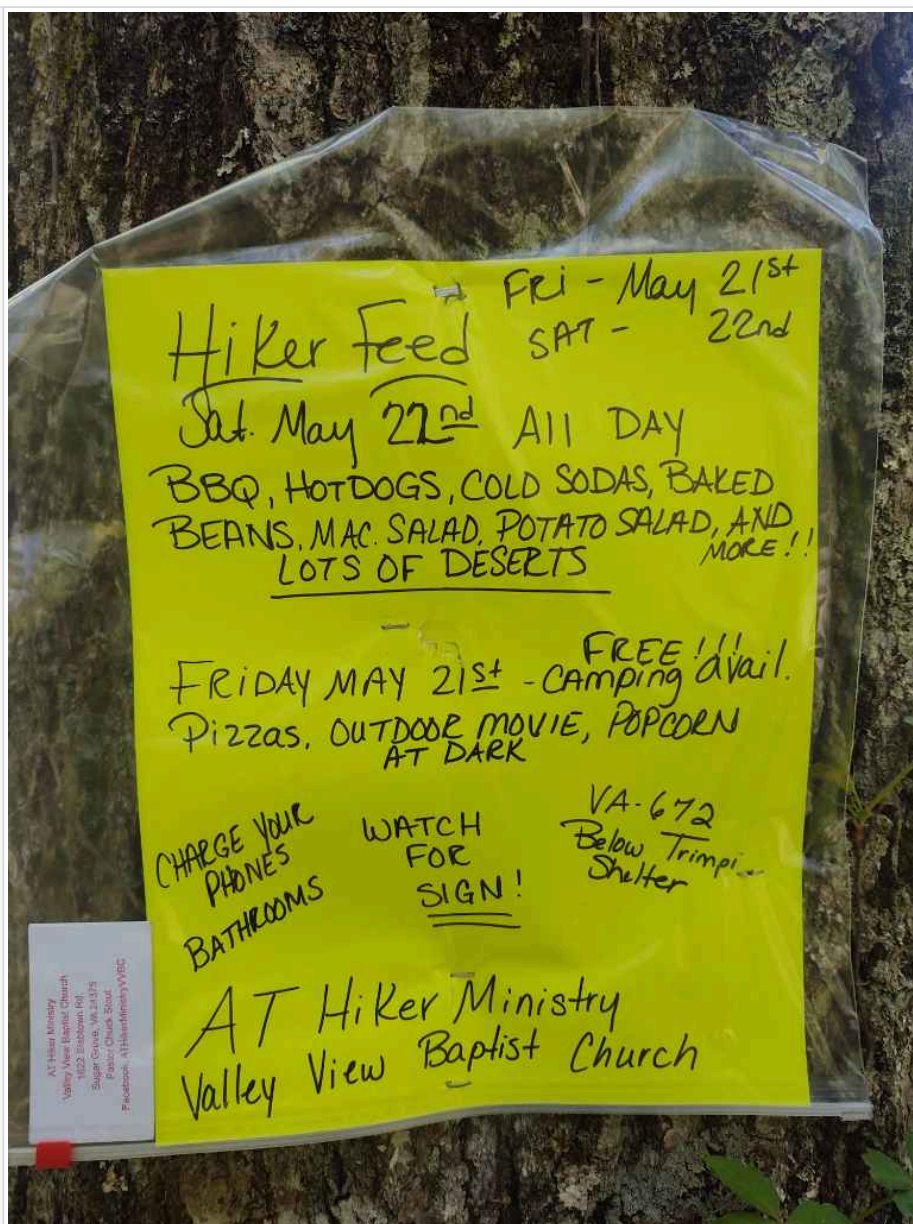 Hiker Feed
Fri - May 21st
SAT - 22nd
Sat. May 22nd All DAY
BBQ, HOTDOGS, COLD SODAS, BAKED
BEANS, MAC. SALAD, POTATO SALAD, AND
MORE!!
LOTS OF DESERTS
FREE!!!
FRIDAY MAY 21st - CAMPING avail.
Pizzas, OUTDOOR MOVIE, POPCORN
AT DARK
CHARGE YOUR
PHONES
BATHROOMS
WATCH
FOR
SIGN!
VA-672
Below Trimpi
Shelter
AT Hiker Ministry
Valley View Baptist Church
AT Hiker Ministry
Valley View Baptist Church
1622 Rd.
Sugar Grove, VA 24375
Pastor Chuck Stout
Facebook: ATHikerMinistryVVBC